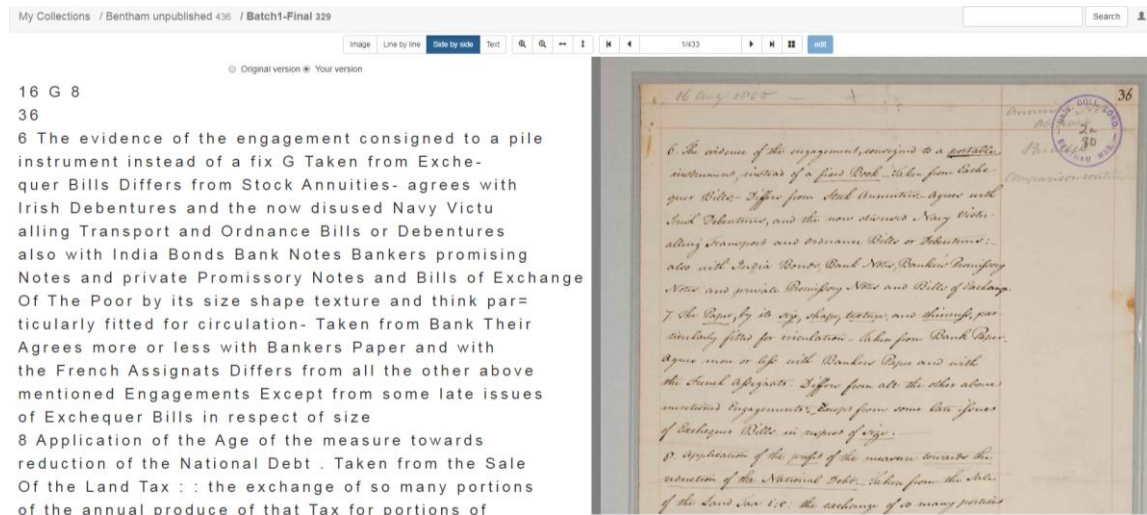 My Collections / Bentham unpublished 436 / Batch1-Final 329
Search
Image Line by line Side by side Text 1/433 edit
Original version Your version
16 G 8
36
6 The evidence of the engagement consigned to a pile
instrument instead of a fix G Taken from Exche-
quer Bills Differs from Stock Annuities- agrees with
Irish Debentures and the now disused Navy Victu
alling Transport and Ordnance Bills or Debentures
also with India Bonds Bank Notes Bankers promising
Notes and private Promissory Notes and Bills of Exchange
Of The Poor by its size shape texture and think par=
ticularly fitted for circulation- Taken from Bank Their
Agrees more or less with Bankers Paper and with
the French Assignats Differs from all the other above
mentioned Engagements Except from some late issues
of Exchequer Bills in respect of size
8 Application of the Age of the measure towards
reduction of the National Debt . Taken from the Sale
Of the Land Tax : : the exchange of so many portions
of the annual produce of that Tax for portions of
16 Aug 1800
36
UNIV. COLL. LOND.
2a
80
BENTHAM MSS.
Comparison continued
6. The evidence of the engagement, consigned to a portable
instrument, instead of a fixed Book. Taken from Exche-
quer Bills- Differs from Stock Annuities. Agrees with
Irish Debentures, and the now disused Navy Victu-
alling Transport and Ordnance Bills or Debentures:
also with India Bonds, Bank Notes, Bankers Promissory
Notes and private Promissory Notes and Bills of Exchange.
7. The Paper, by its size, shape, texture, and thinness, par-
ticularly fitted for circulation - Taken from Bank Paper.
Agrees more or less with Bankers Paper and with
the French Assignats. Differs from all the other above
mentioned Engagements: Except from some late issues
of Exchequer Bills in respect of size.
8. Application of the profit of the measure towards the
reduction of the National Debt. Taken from the Sale
of the Land Tax i:e: the exchange of so many portions